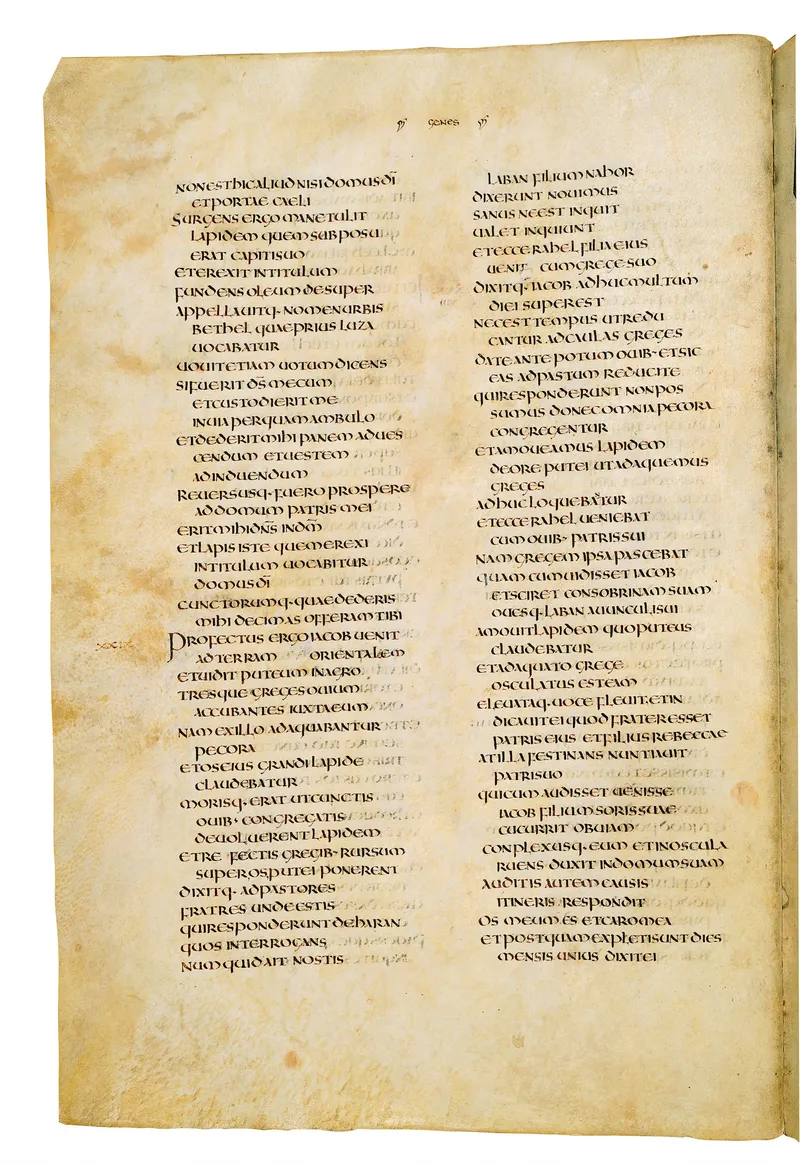 GENES
NON EST hIC ALIUD NISI DOMUS D̄I
ET PORTAE CAELI
SURGENS ERGO MANE TULIT
LAPIDEM QUEM SUBPOSU
ERAT CAPITI SUO
ET EREXIT IN TITULUM
FUNDENS OLEUM DESUPER
APPELLAUITQ· NOMEN URBIS
BETHEL QUAE PRIUS LUZA
UOCABATUR
UOUIT ETIAM UOTUM DICENS
SI FUERIT D̄S MECUM
ET CUSTODIERIT ME
IN UIA PER QUAM AMBULO
ET DEDERIT MIHI PANEM AD UES
CENDUM ET UESTEM
AD INDUENDUM
REUERSUSQ· FUERO PROSPERE
AD DOMUM PATRIS MEI
ERIT MIHI DN̄S IN DM̄
ET LAPIS ISTE QUEM EREXI
IN TITULUM UOCABITUR
DOMUS D̄I
CUNCTORUMQ· QUAE DEDERIS
MIHI DECIMAS OFFERAM TIBI
XXIX PROFECTUS ERGO IACOB UENIT
AD TERRAM ORIENTALEM
ET UIDIT PUTEUM IN AGRO
TRESQUE GREGES OUIUM
ACCUBANTES IUXTA EUM
NAM EX ILLO ADAQUABANTUR
PECORA
ET OS EIUS GRANDI LAPIDE
CLAUDEBATUR
MORISQ· ERAT UT CUNCTIS
OUIB· CONGREGATIS
DEUOLUERENT LAPIDEM
ET REFECTIS GREGIB· RURSUM
SUPER OS PUTEI PONERENT
DIXITQ· AD PASTORES
FRATRES UNDE ESTIS
QUI RESPONDERUNT DE HARAN
QUOS INTERROGANS
NUMQUID AIT NOSTIS
LABAN FILIUM NAHOR
DIXERUNT NOUIMUS
SANUSNE EST INQUIT
UALET INQUIUNT
ET ECCE RAHEL FILIA EIUS
UENIT CUM GREGE SUO
DIXITQ· IACOB ADHUC MULTUM
DIEI SUPEREST
NEC EST TEMPUS UT REDU
CANTUR AD CAULAS GREGES
DATE ANTE POTUM OUIB· ET SIC
EAS AD PASTUM REDUCITE
QUI RESPONDERUNT NON POS
SUMUS DONEC OMNIA PECORA
CONGREGENTUR
ET AMOUEAMUS LAPIDEM
DE ORE PUTEI UT ADAQUEMUS
GREGES
ADHUC LOQUEBATUR
ET ECCE RAHEL UENIEBAT
CUM OUIB· PATRIS SUI
NAM GREGEM IPSA PASCEBAT
QUAM CUM UIDISSET IACOB
ET SCIRET CONSOBRINAM SUAM
OUESQ· LABAN AUUNCULI SUI
AMOUIT LAPIDEM QUO PUTEUS
CLAUDEBATUR
ET ADAQUATO GREGE
OSCULATUS EST EAM
ELEUATAQ· UOCE FLEUIT ET IN
DICAUIT EI QUOD FRATER ESSET
PATRIS EIUS ET FILIUS REBECCAE
AT ILLA FESTINANS NUNTIAUIT
PATRI SUO
QUI CUM AUDISSET UENISSE
IACOB FILIUM SORIS SUAE
CUCURRIT OBUIAM
CONPLEXUSQ· EUM ET IN OSCULA
RUENS DUXIT IN DOMUM SUAM
AUDITIS AUTEM CAUSIS
ITINERIS RESPONDIT
OS MEUM ES ET CARO MEA
ET POSTQUAM EXPLETI SUNT DIES
MENSIS UNIUS DIXIT EI